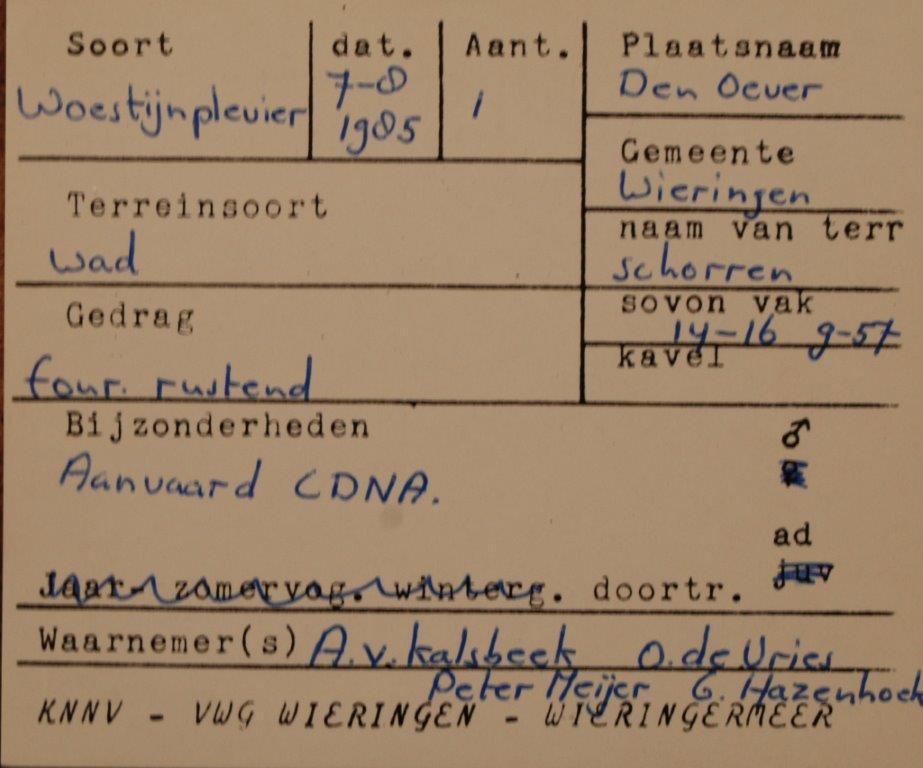 Soort dat. Aant. Plaatsnaam
Woestijnplevier 7-8 1985 1 Den Oever
Gemeente
Wieringen
Terreinsoort naam van terr
wad schorren
Gedrag sovon vak
14-16 9-57
kavel
four. rustend
Bijzonderheden ♂
Aanvaard CDNA.
ad
juv
Jaar. zomervog. winterg. doortr.
Waarnemer(s) A.v. Kalsbeek O. de Vries
Peter Meijer G. Hazenhoek
KNNV - VWG WIERINGEN - WIERINGERMEER